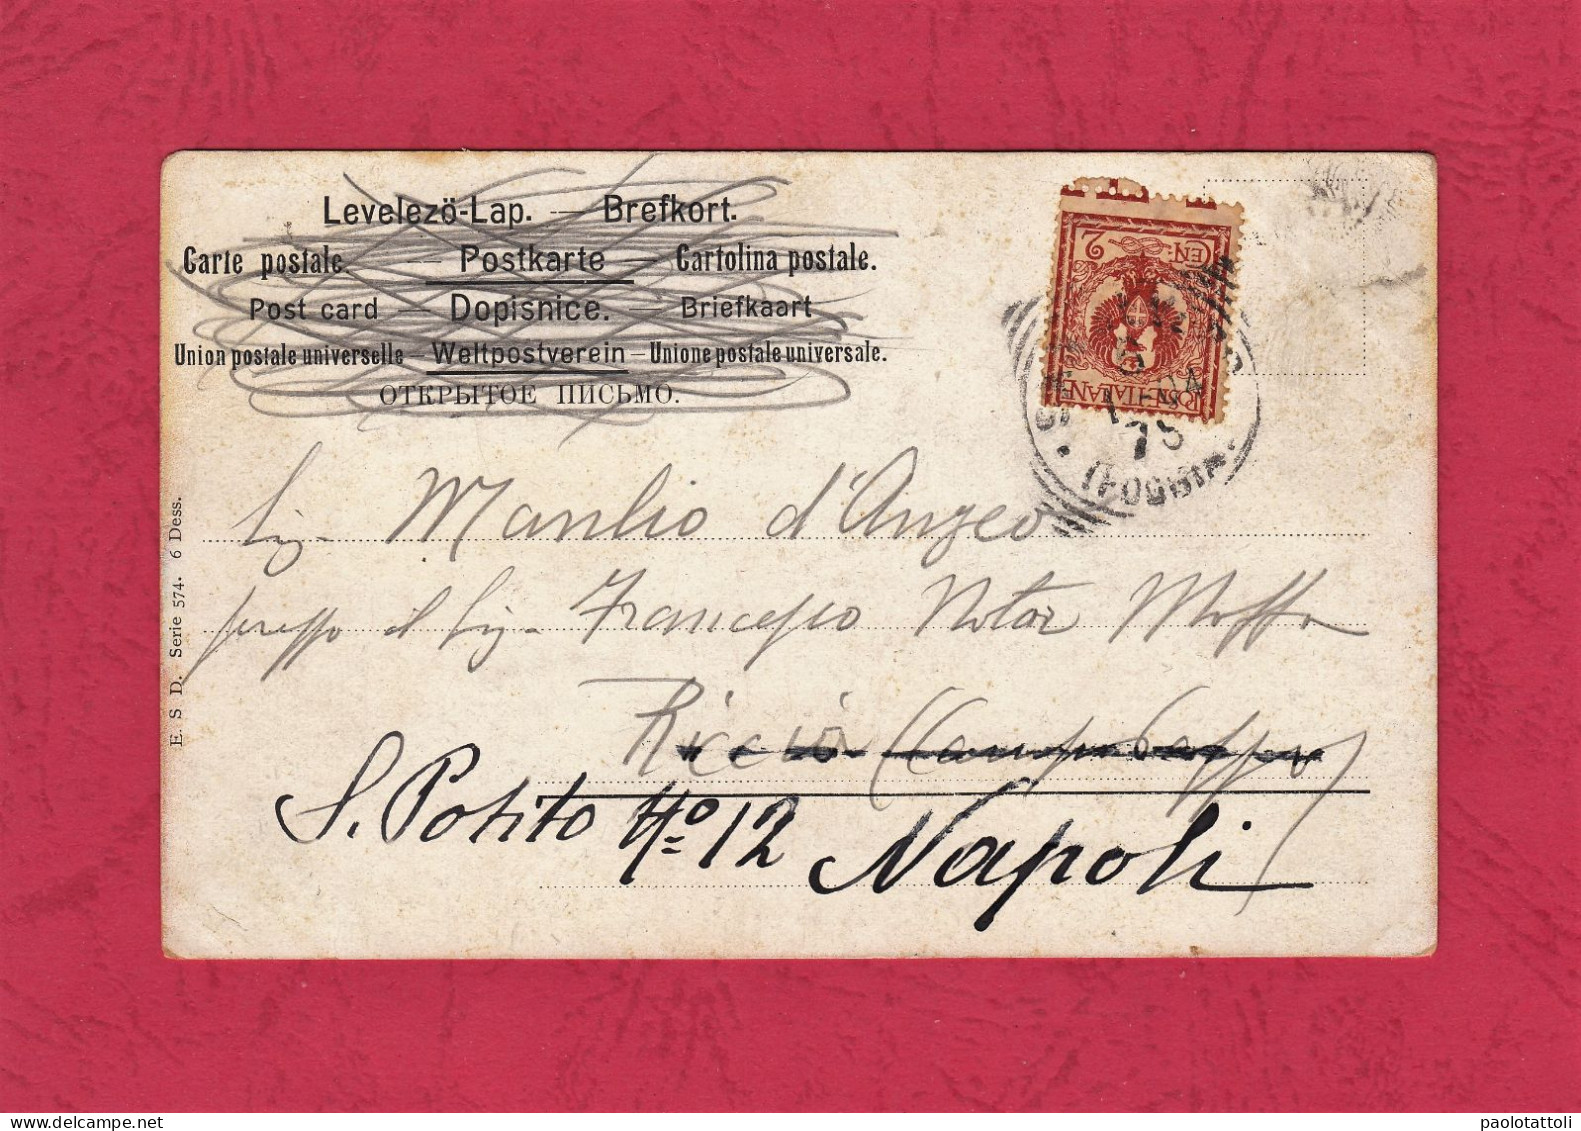 Levelezö-Lap. — Brefkort.
Carte postale. — Postkarte — Cartolina postale.
Post card — Dopisnice. — Briefkaart
Union postale universelle — Weltpostverein — Unione postale universale.
ОТКРЫТОЕ ПИСЬМО.
CEN: 2
POSTE ITALIANE
(FOGGIA)
E. S D. Serie 574. 6 Dess.
Sig. Manlio d'Angeo
presso il Sig. Francesco Notar Moffa
Riccia (Campobasso)
S. Potito Nº 12 Napoli
paolotattoli